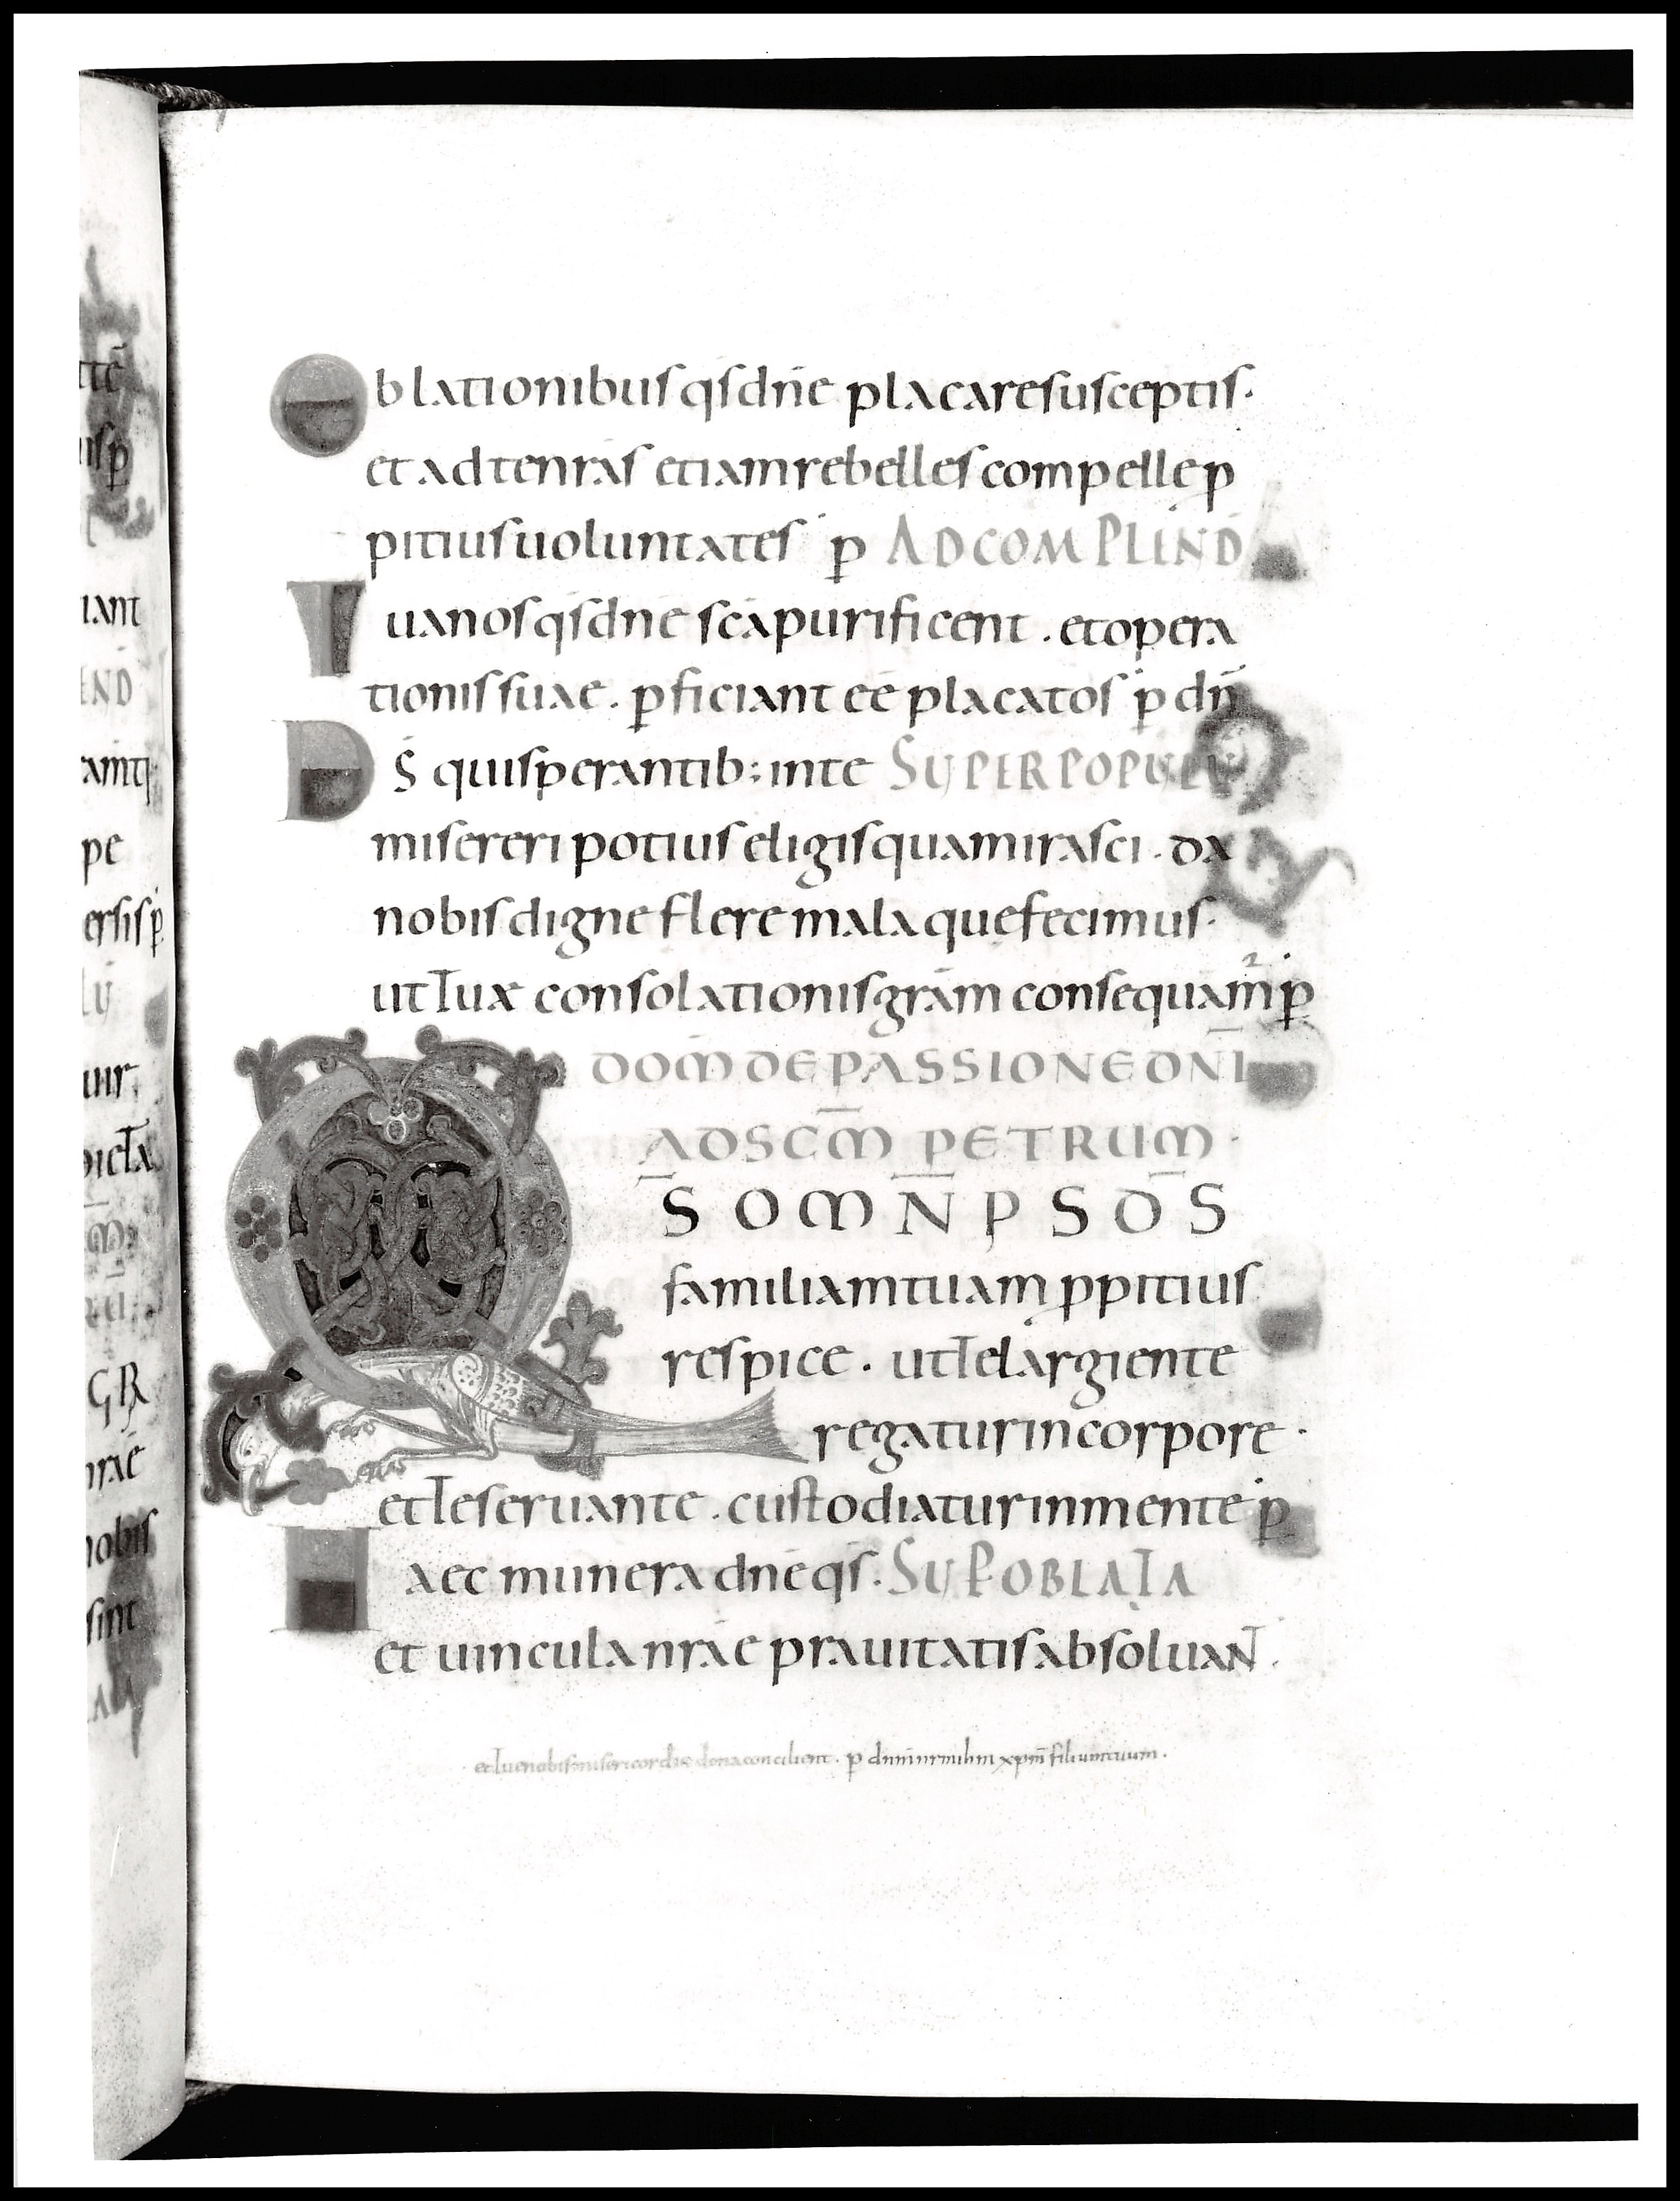 Oblationibus qs dne placare susceptis.
et ad te nras etiam rebelles compelle p
pitius uoluntates p AD COMPLEND
Tua nos qs dne sca purificent . et opera
tionis suae . pficiant ee placatos p dn
Ds qui sperantib; in te SUPER POPULU
misereri potius eligis quam irasci . da
nobis digne flere mala que fecimus.
ut tux consolationis gram consequam p
DOM DE PASSIONE DNI
AD SCM PETRUM .
QS OMN PS DS
familiam tuam ppitius
respice . ut te largiente
regatur in corpore .
et te seruante . custodiatur in mente p
Haec munera dne qs . SUP OBLATA
et uincula nrae prauitatis absoluant .
et tue nobis misericordie dona concilient . p dnm nrm ihm xpm filium tuum .
tte
usp
iant
END
pe
ersis p
lu
uir
dicta
GR
nrae
nobis
sint